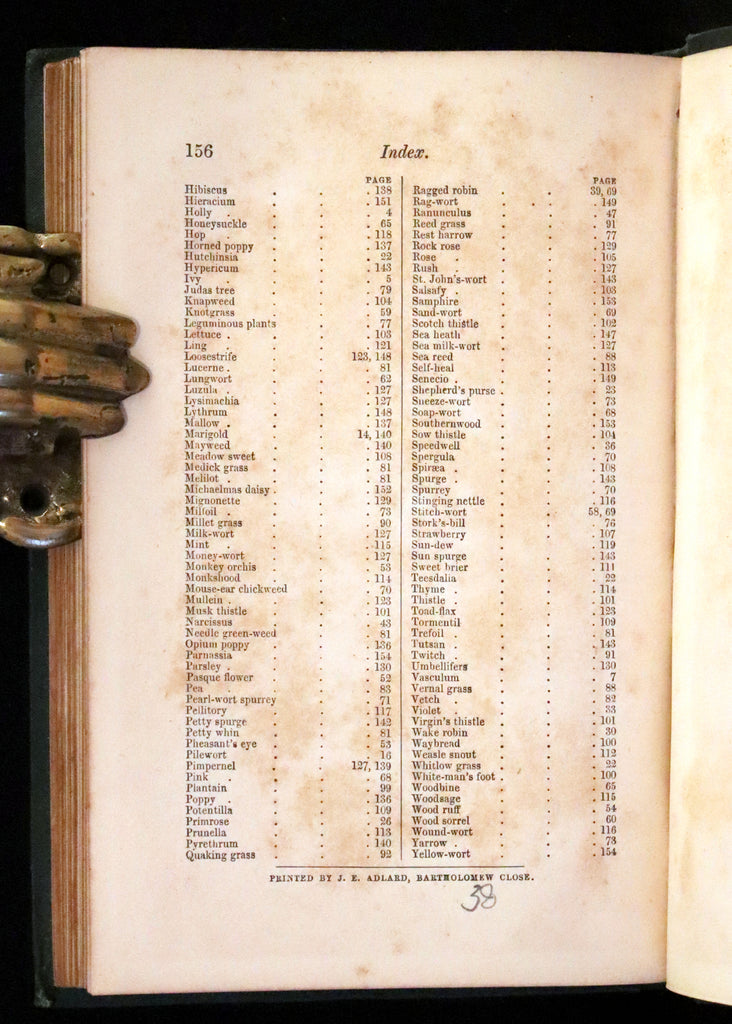 156
Index.
PAGE
Hibiscus . . . 138
Hieracium . . . 151
Holly . . . . 4
Honeysuckle . . . 65
Hop . . . . 118
Horned poppy . . . 137
Hutchinsia . . . 22
Hypericum . . . 143
Ivy . . . . 5
Judas tree . . . 79
Knapweed . . . 104
Knotgrass . . . 59
Leguminous plants . . 77
Lettuce . . . . 103
Ling . . . . 121
Loosestrife . . 123, 148
Lucerne . . . . 81
Lungwort . . . 62
Luzula . . . . 127
Lysimachia . . . 127
Lythrum . . . 148
Mallow . . . . 137
Marigold . . 14, 140
Mayweed . . . 140
Meadow sweet . . . 108
Medick grass . . . 81
Melilot . . . . 81
Michaelmas daisy . . . 152
Mignonette . . . 129
Milfoil . . . . 73
Millet grass . . . 90
Milk-wort . . . 127
Mint . . . . 115
Money-wort . . . 127
Monkey orchis . . . 53
Monkshood . . . 114
Mouse-ear chickweed . . 70
Mullein . . . . 123
Musk thistle . . . 101
Narcissus . . . 43
Needle green-weed . . 81
Opium poppy . . . 136
Parnassia . . . 154
Parsley . . . . 130
Pasque flower . . . 52
Pea . . . . 83
Pearl-wort spurrey . . 71
Pellitory . . . 117
Petty spurge . . . 142
Petty whin . . . 81
Pheasant's eye . . . 53
Pilewort . . . 16
Pimpernel . . 127, 139
Pink . . . . 68
Plantain . . . 99
Poppy . . . . 136
Potentilla . . . 109
Primrose . . . 26
Prunella . . . 113
Pyrethrum . . . 140
Quaking grass . . . 92
PAGE
Ragged robin . . 39, 69
Rag-wort . . . 149
Ranunculus . . . 47
Reed grass . . . 91
Rest harrow . . . 77
Rock rose . . . 129
Rose . . . . 105
Rush . . . . 127
St. John's-wort . . . 143
Salsafy . . . . 103
Samphire . . . 153
Sand-wort . . . 69
Scotch thistle . . . 102
Sea heath . . . 147
Sea milk-wort . . . 127
Sea reed . . . 88
Self-heal . . . 113
Senecio . . . . 149
Shepherd's purse . . . 23
Sneeze-wort . . . 73
Soap-wort . . . 68
Southernwood . . . 153
Sow thistle . . . 104
Speedwell . . . 36
Spergula . . . 70
Spiræa . . . . 108
Spurge . . . 143
Spurrey . . . 70
Stinging nettle . . . 116
Stitch-wort . . 58, 69
Stork's-bill . . . 76
Strawberry . . . 107
Sun-dew . . . 119
Sun spurge . . . 143
Sweet brier . . . 111
Teesdalia . . . 22
Thyme . . . . 114
Thistle . . . . 101
Toad-flax . . . 123
Tormentil . . . 109
Trefoil . . . . 81
Tutsan . . . . 143
Twitch . . . . 91
Umbellifers . . . 130
Vasculum . . . 7
Vernal grass . . . 88
Vetch . . . . 82
Violet . . . . 33
Virgin's thistle . . . 101
Wake robin . . . 30
Waybread . . . 100
Weasle snout . . . 112
Whitlow grass . . . 22
White-man's foot . . . 100
Woodbine . . . 65
Woodsage . . . 115
Wood ruff . . . 54
Wood sorrel . . . 60
Wound-wort . . . 116
Yarrow . . . . 73
Yellow-wort . . . 154
PRINTED BY J. E. ADLARD, BARTHOLOMEW CLOSE.
38